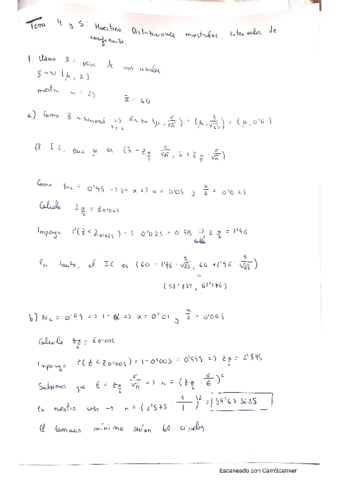 Tema 4 y 5: Muestreo. Distribuciones muestrales. Intervalos de
confianza
1. Llamo X: peso de
X ~ N(μ, 3)
n = 25 x̄ = 60
a) Como X ~ Normal => x̄ ~ N(μ, σ/√n) = (μ, 3/√25) = (μ, 0'6)
El I.C. para μ es (x̄ - z α/2 · σ/√n, x̄ + z α/2 · σ/√n)
Como Nc = 0'95 => 1-α => α = 0'05 y α/2 = 0'025
Calculo z α/2 = z 0'025
Impongo P(Z < z 0'025) = 1 - 0'025 = 0'975 => z α/2 = 1'96
tabla
Por tanto, el IC es (60 - 1'96 · 3/√25, 60 + 1'96 · 3/√25)
"
(58'824, 61'176)
b) Nc = 0'99 => 1-α => α = 0'01 y α/2 = 0'005
Calculo z α/2 = z 0'005
Impongo P(Z < z 0'005) = 1 - 0'005 = 0'995 => z α/2 = 2'575
Sabemos que E = z α/2 · σ/√n => n = (z α/2 · σ/E)²
En nuestro caso -> n = (2'575 · 3/1)² = 59'675625
El tamaño mínimo serían 60
Escaneado con CamScanner